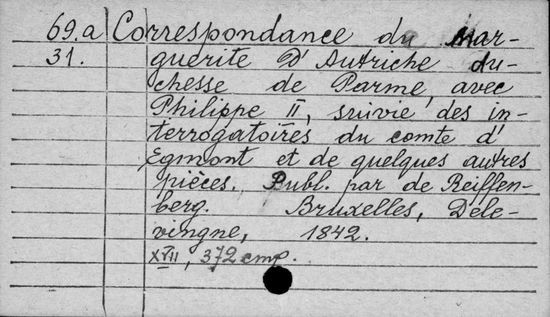 69.a Correspondance du Mar-
31. guerite D'Autriche du-
chesse de Parme, avec
Philippe II, suivie des in-
terrogatoires du comte d'
Egmont et de quelques autres
pièces. Publ. par de Reiffen-
berg. Bruxelles, Dele-
vingne, 1842.
XVII, 372 cmp.